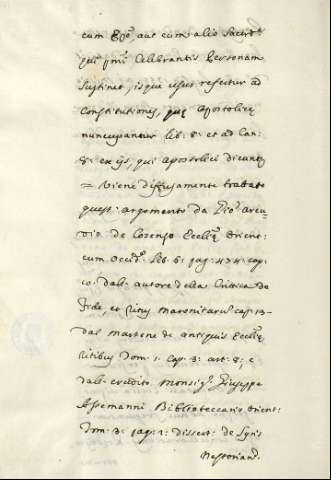 cum Ep̃o, aut cum alio Sacerd:
qui primi Celebrantis Personam
sustinet, isque usus refertur ad
Constitutiones, quę Apostolicę
nuncupantur lib: 8: et ad Can:
8: ex ijs, qui Apostolici dicunt:
= Viene diffusamente trattato
quest: argomento da
de Eccliæ Orient:
cum Occid: lib: 6: pag: 474: cap:
dall: autore della Critica de
Fide, et Ritu Maronitarum cap: 13-
dal Martene de antiquis Eccliæ
Ritibus Tom: 1. Cap: 3: art: 8:, e
dall: erudito Monsig: Giuseppe
Assemanni Bibliotecario Orient:
Tom: 3: pag: dissert: de Syris
Nestorian: